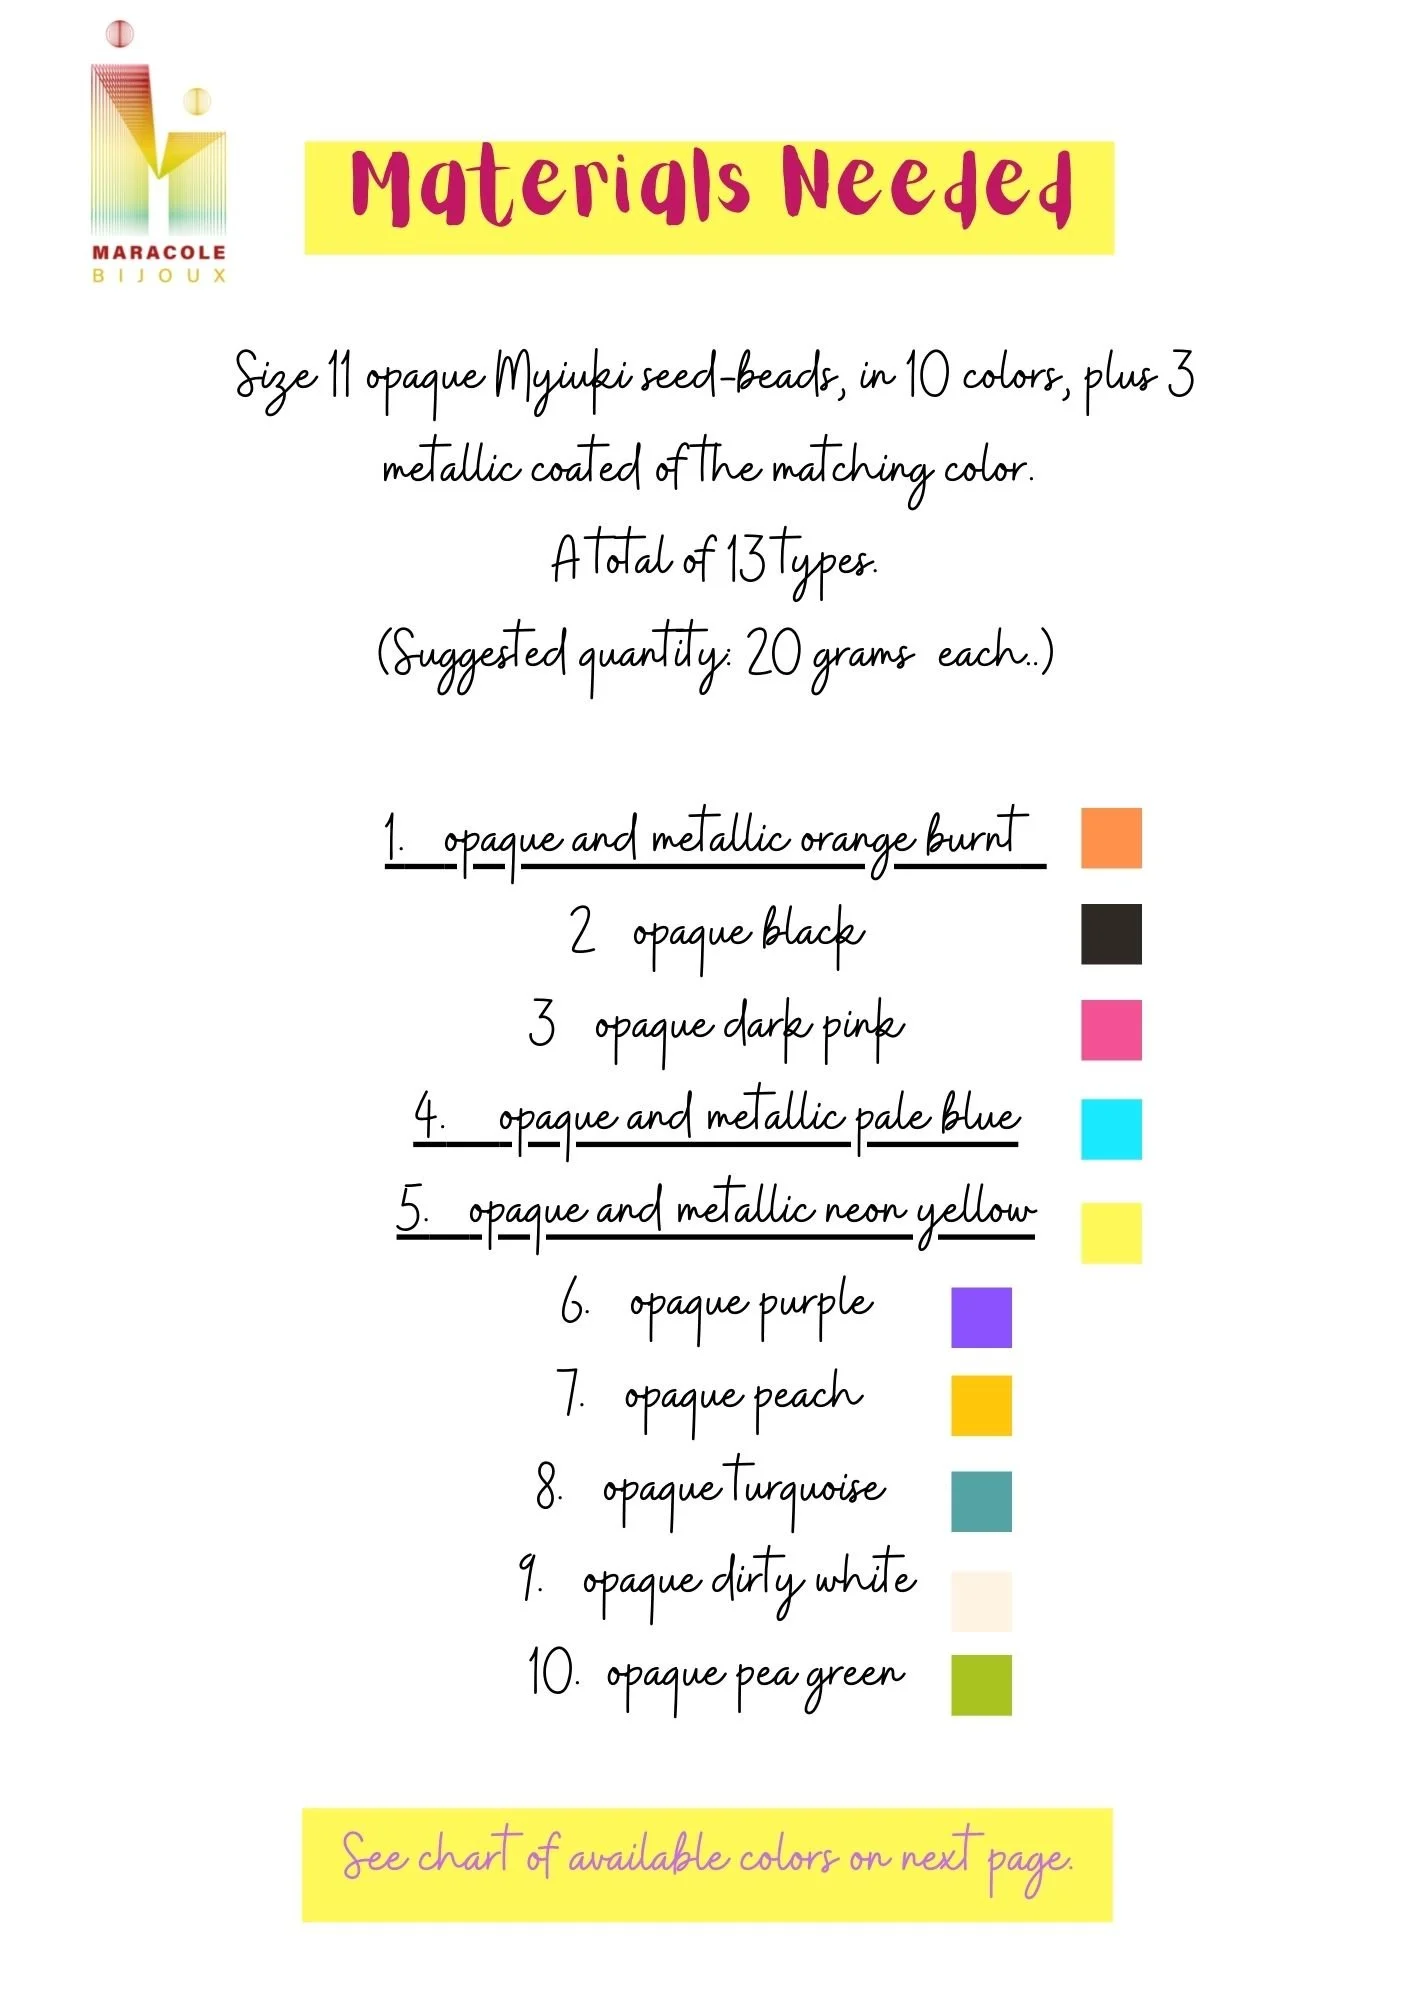 MARACOLE
BIJOUX
Materials Needed
Size 11 opaque Myiuki seed-beads, in 10 colors, plus 3
metallic coated of the matching color.
A total of 13 types.
(Suggested quantity: 20 grams each..)
1. opaque and metallic orange burnt
2 opaque black
3 opaque dark pink
4. opaque and metallic pale blue
5. opaque and metallic neon yellow
6. opaque purple
7. opaque peach
8. opaque turquoise
9. opaque dirty white
10. opaque pea green
See chart of available colors on next page.